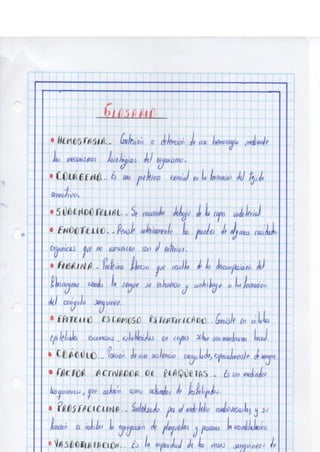 GLOSARIO
• HEMOSTASIA.- Contención o detención de una hemorragia mediante
los mecanismos fisiológicos del organismo.
• COLÁGENO.- Es una proteína esencial en la formación del tejido
conectivo.
• SUBENDOTELIAL.- Se encuentra debajo de la capa endotelial.
• ENDOTELIO.- Reviste interiormente las paredes de algunas cavidades
orgánicas que no comunican con el exterior.
• FIBRINA.- Proteína fibrosa que resulta de la descomposición del
fibrinógeno cuando la sangre se extravasa y contribuye a la formación
del coágulo sanguíneo.
• EPITELIO ESCAMOSO ESTRATIFICADO.- Consiste en células
epiteliales escamosas, establecidas en capas sobre una membrana basal.
• COÁGULO.- Porción de una sustancia coagulada, especialmente de sangre.
• FACTOR ACTIVADOR DE PLAQUETAS.- Es un mediador
que actúan como de fosfolípidos.
• PROSTACICLINA.- Sintetizada por el endotelio y su
función es inhibir la agregación de plaquetas y
• VASODILATACIÓN.- Es la capacidad de los vasos sanguíneos de